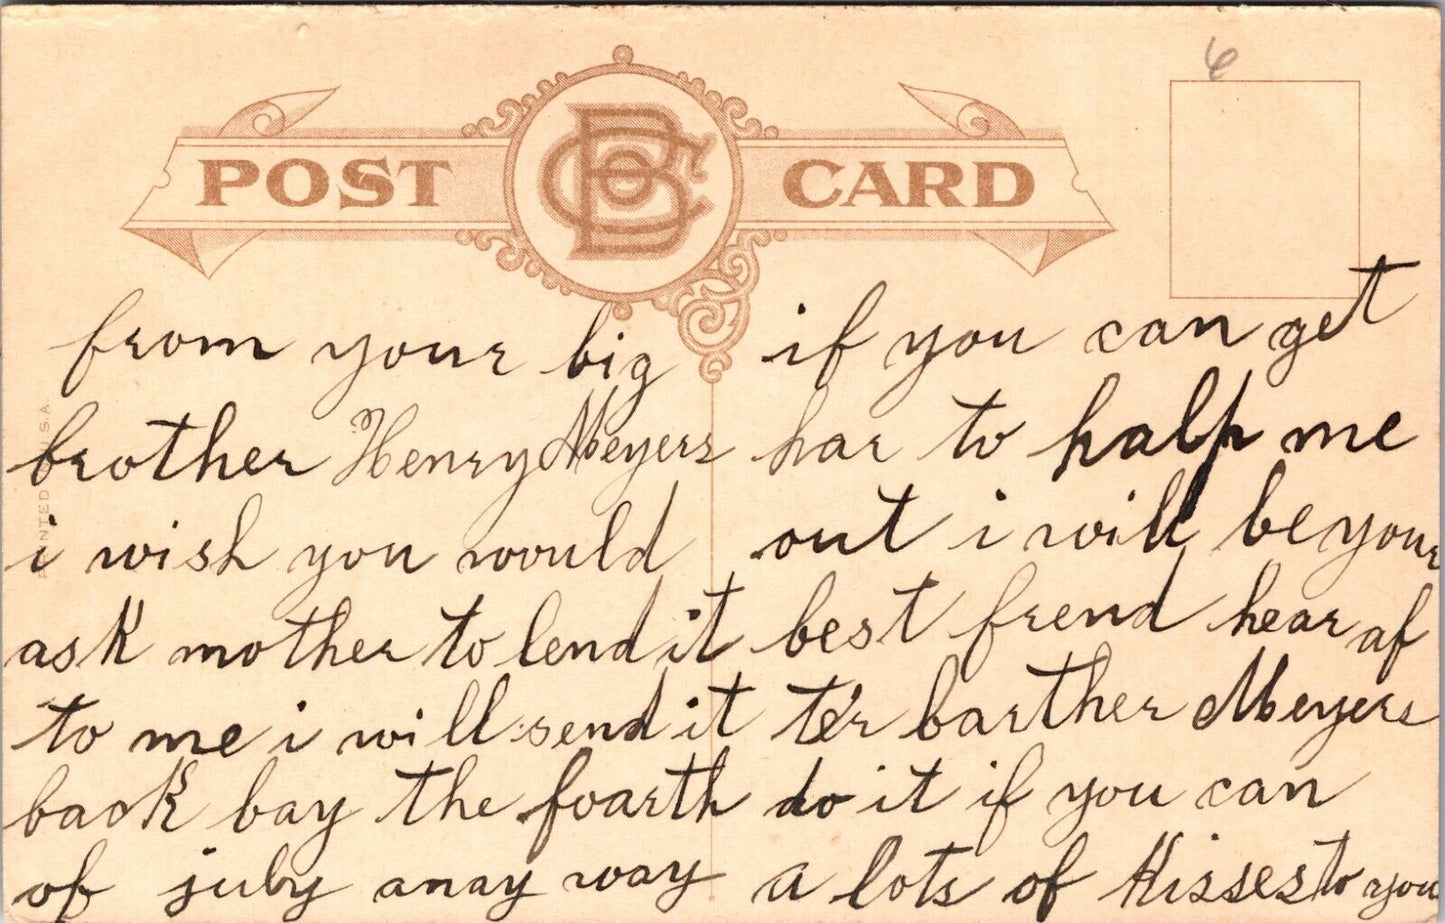 6
POST BCO CARD
PRINTED U.S.A.
from your big
brother Henry Meyers
i wish you would
ask mother to lend it
to me i will send it
back bay the foarth
of july anay way
if you can get
har to halp me
out i will be your
best frend hear af
te'r barther Meyers
do it if you can
a lots of Kisses to you